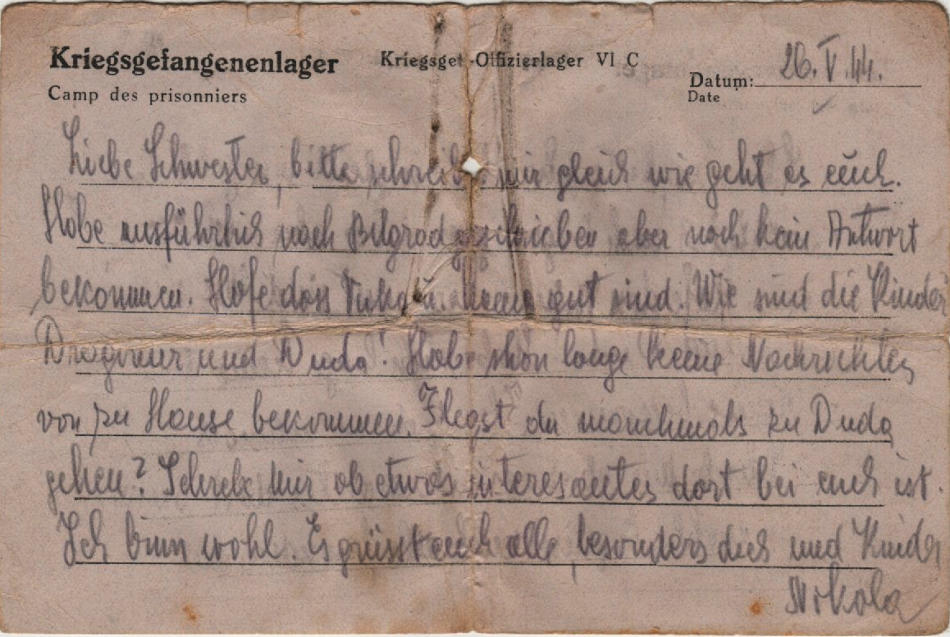 Kriegsgefangenenlager Kriegsgef.-Offizierlager VI C
Camp des prisonniers
Datum: 26.V.44.
Date
Liebe Schwester, bitte schreibe mir gleich wie geht es euch.
Habe ausführlich nach Belgrad geschrieben aber noch kein Antwort
bekommen. Hofe dass u. gut sind. Wie sind die Kinder
Dragimir und Duda! Habe shon lange keine Nachrichten
von zu Hause bekommen. du manchmals zu Duda
gehen? Schrebe mir ob etwas interesantes dort bei euch ist.
Ich binn wohl. Es grüsst euch alle, besonders dich und Kinder
Nikola